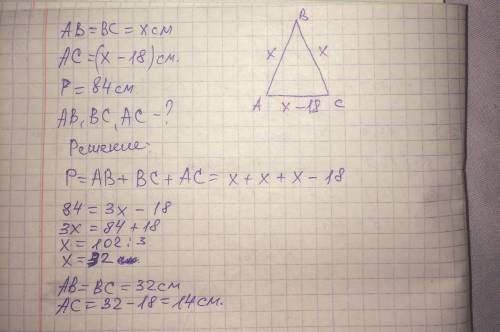 AB = BC = x см
AC = (x - 18) см.
P = 84 см
AB, BC, AC - ?
Решение:
P = AB + BC + AC = x + x + x - 18
84 = 3x - 18
3x = 84 + 18
x = 102 : 3
x = 32
AB = BC = 32 см
AC = 32 - 18 = 14 см.
B
x x
A x - 18 C